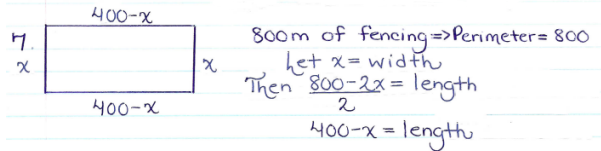 400-x
7.
x
x
400-x
800m of fencing=>Perimeter= 800
Let x= width
Then 800-2x = length
2
400-x = length